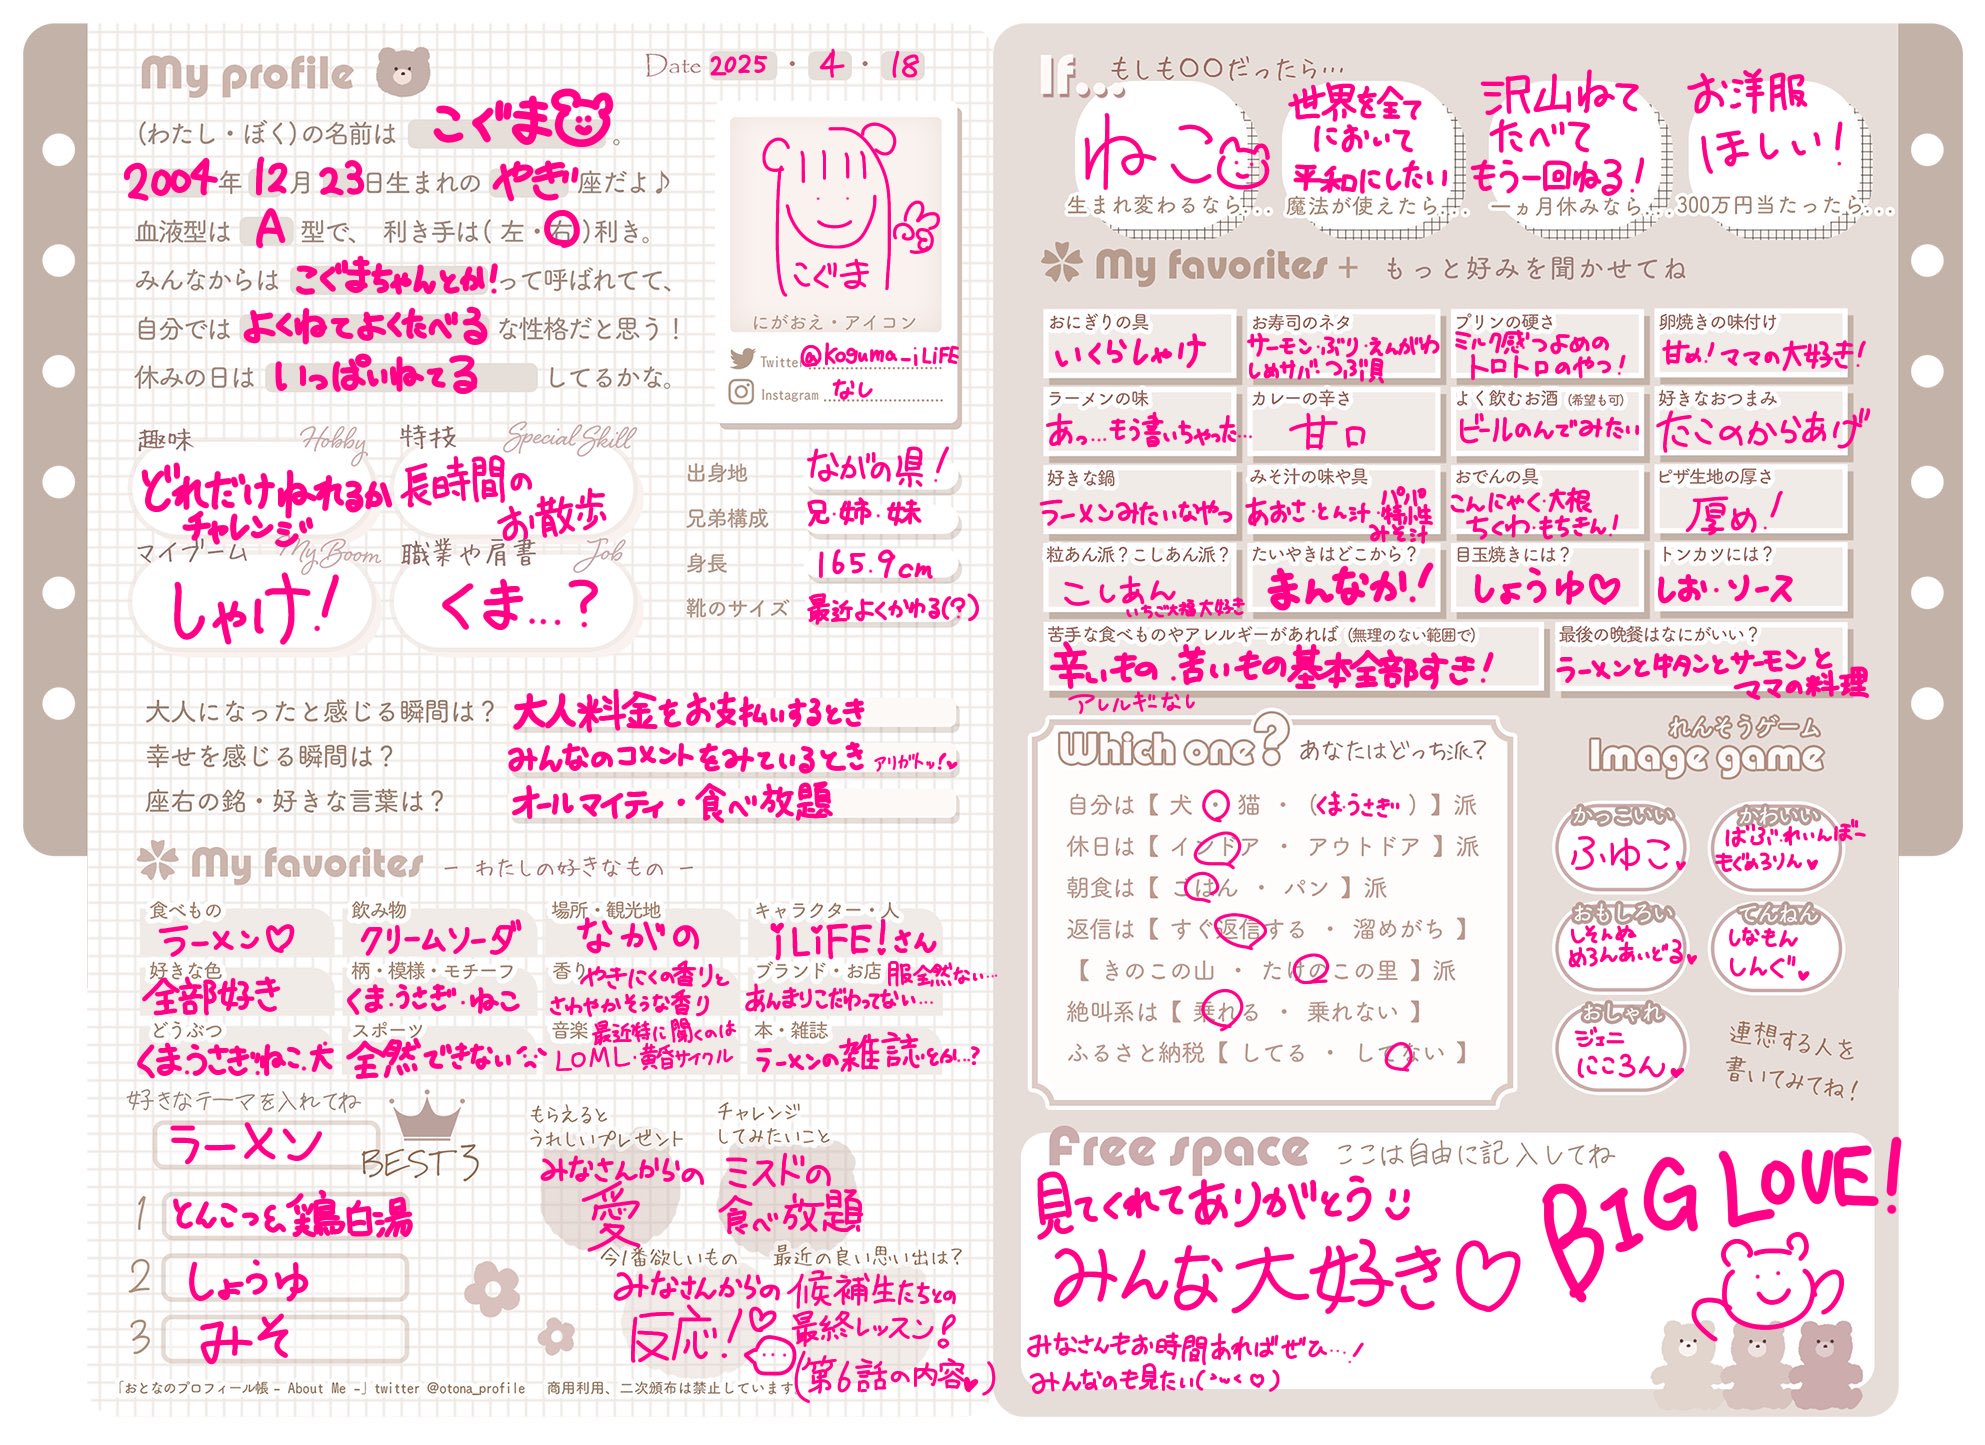 My profile
Date 2025 ・ 4 ・ 18
(わたし・ぼく)の名前は こぐま 。
2004年 12月 23日生まれの やぎ 座だよ♪
血液型は A 型で、 利き手は( 左・右 )利き。
みんなからは こぐまちゃんとか! って呼ばれてて、
自分では よくねてよくたべる な性格だと思う！
休みの日は いっぱいねてる してるかな。
こぐま
にがおえ・アイコン
Twitter @koguma_iLiFE
Instagram なし
趣味 Hobby
どれだけねれるか
チャレンジ
特技 Special Skill
長時間の
お散歩
マイブーム My Boom
しゃけ!
職業や肩書 Job
くま…?
出身地 ながの県!
兄弟構成 兄・姉・妹
身長 165.9cm
靴のサイズ 最近よくかわる(?)
大人になったと感じる瞬間は？ 大人料金をお支払いするとき
幸せを感じる瞬間は？ みんなのコメントをみているとき アリガトッ!♥
座右の銘・好きな言葉は？ オールマイティ・食べ放題
My favorites － わたしの好きなもの －
食べもの
ラーメン♡
飲み物
クリームソーダ
場所・観光地
ながの
キャラクター・人
iLiFE!さん
好きな色
全部好き
柄・模様・モチーフ
くま・うさぎ・ねこ
香り やきにくの香りと
さわやかそうな香り
ブランド・お店 服全然ない…
あんまりこだわってない…
どうぶつ
くま・うさぎ・ねこ・犬
スポーツ
全然できない
音楽 最近特に聞くのは
LOML・黄昏サイクル
本・雑誌
ラーメンの雑誌とか…?
好きなテーマを入れてね
ラーメン
BEST3
1 とんこつと鶏白湯
2 しょうゆ
3 みそ
もらえると
うれしいプレゼント
みなさんからの
愛
チャレンジ
してみたいこと
ミスドの
食べ放題
今1番欲しいもの
みなさんからの
反応!♡
最近の良い思い出は？
候補生たちとの
最終レッスン!
(第6話の内容♥)
「おとなのプロフィール帳 - About Me -」twitter @otona_profile 商用利用、二次頒布は禁止しています
If... もしも〇〇だったら…
ねこ
生まれ変わるなら...
世界を全て
において
平和にしたい
魔法が使えたら...
沢山ねて
たべて
もう一回ねる!
一ヵ月休みなら...
お洋服
ほしい!
300万円当たったら...
My favorites + もっと好みを聞かせてね
おにぎりの具
いくらしゃけ
お寿司のネタ
サーモン・ぶり・えんがわ
しめサバ・つぶ貝
プリンの硬さ
ミルク感つよめの
トロトロのやつ!
卵焼きの味付け
甘め!ママの大好き!
ラーメンの味
あっ…もう書いちゃった…
カレーの辛さ
甘口
よく飲むお酒 (希望も可)
ビールのんでみたい
好きなおつまみ
たこのからあげ
好きな鍋
ラーメンみたいなやつ
みそ汁の味や具
あおさ・とん汁・パパ特性
みそ汁
おでんの具
こんにゃく・大根
ちくわ・もちきん!
ピザ生地の厚さ
厚め!
粒あん派？こしあん派？
こしあん
いちご大福大好き
たいやきはどこから？
まんなか!
目玉焼きには？
しょうゆ♡
トンカツには？
しお・ソース
苦手な食べものやアレルギーがあれば (無理のない範囲で)
辛いもの・苦いもの基本全部すき!
アレルギーなし
最後の晩餐はなにがいい？
ラーメンと牛タンとサーモンと
ママの料理
Which one? あなたはどっち派？
自分は【 犬 ・ 猫 ・ (くま・うさぎ) 】派
休日は【 インドア ・ アウトドア 】派
朝食は【 ごはん ・ パン 】派
返信は【 すぐ返信する ・ 溜めがち 】
【 きのこの山 ・ たけのこの里 】派
絶叫系は【 乗れる ・ 乗れない 】
ふるさと納税【 してる ・ してない 】
れんそうゲーム
Image game
かっこいい
ふゆこ♥
かわいい
ばぶ・れいんぼー
もぐめろりん♥
おもしろい
しそんぬ
めろんあいどる♥
てんねん
しなもん
しんぐ♥
おしゃれ
ジェニ
にころん♥
連想する人を
書いてみてね!
Free space ここは自由に記入してね
見てくれてありがとう
みんな大好き♡
BIG LOVE!
みなさんもお時間あればぜひ…!
みんなのも見たい